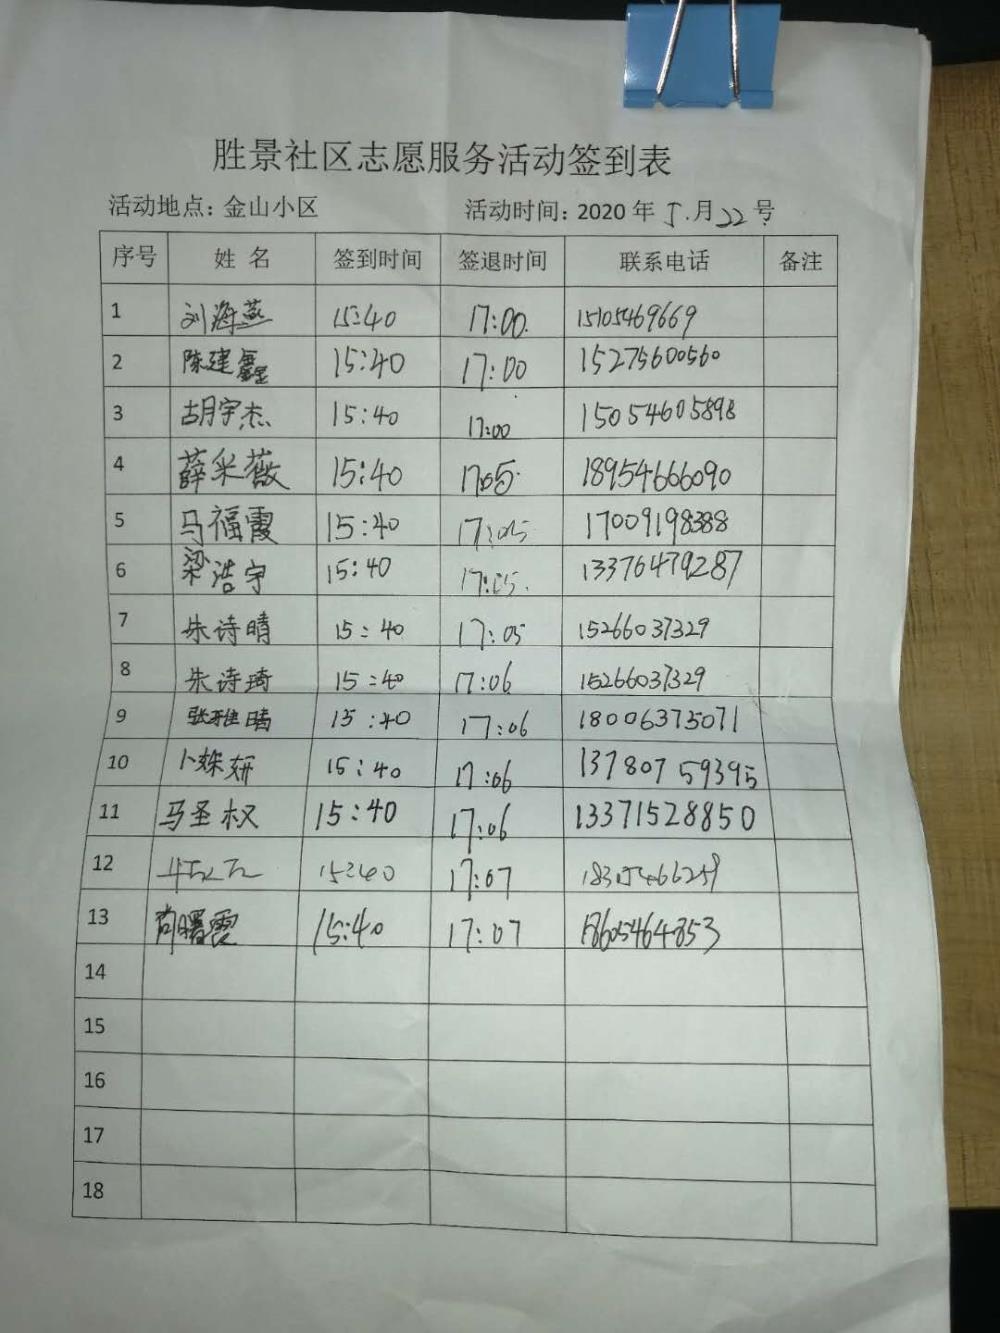 胜景社区志愿服务活动签到表
活动地点: 金山小区 活动时间: 2020 年 5.月22号
序号 姓 名 签到时间 签退时间 联系电话 备注
1 刘海燕 15:40 17:00. 15105469669
2 陈建鑫 15:40 17:00 15275600560
3 胡宇杰 15:40 17:00 15054605898
4 薛采薇 15:40 17:05. 18954666090
5 马福霞 15:40 17:05 17009198388
6 梁浩宇 15:40 17:05. 13376479287
7 朱诗晴 15:40 17:05 15266037329
8 朱诗琦 15:40 17:06 15266037329
9 张雅晴 15:40 17:06 18006375071
10 15:40 17:06 13780759395
11 马圣权 15:40 17:06 13371528850
12 15:40 17:07
13 尚曙霞 15:40 17:07 18605464853
14
15
16
17
18